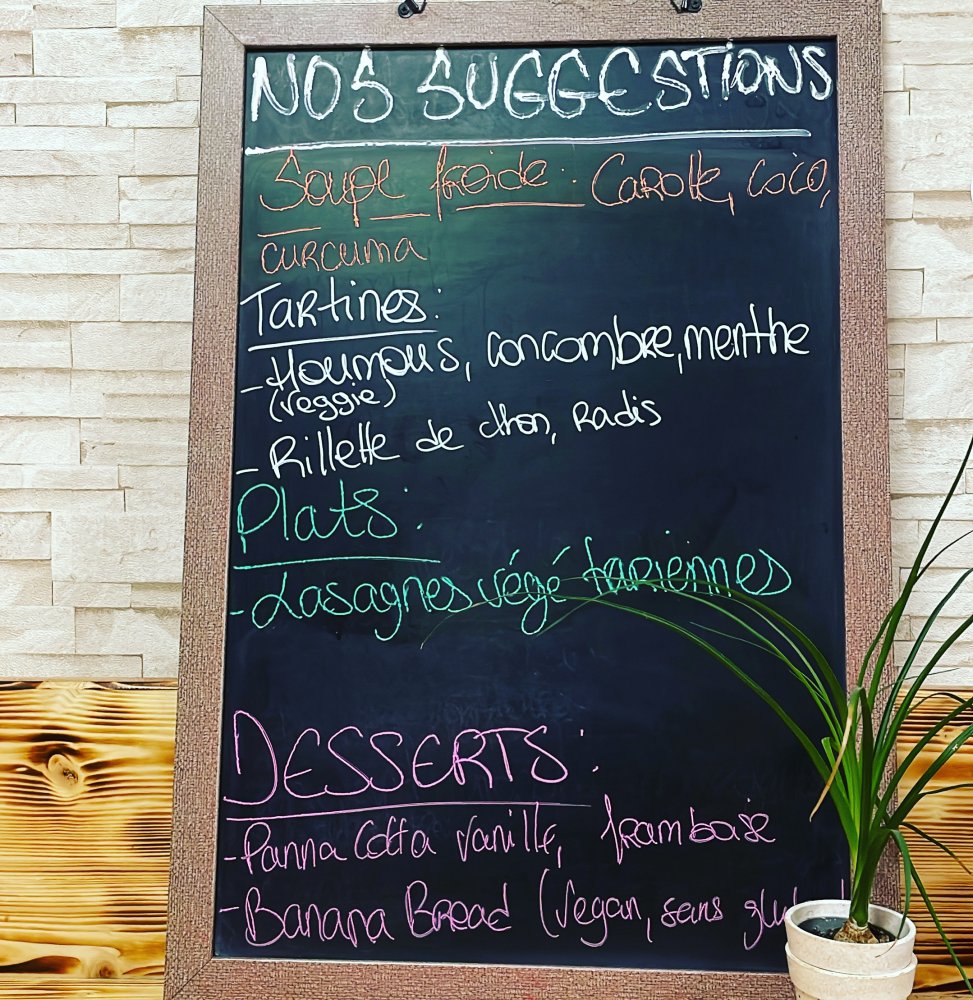 NOS SUGGESTIONS
Soupe froide : Carotte, Coco,
curcuma
Tartines :
- Houmous, concombre, menthe
(veggie)
- Rillette de thon, Radis
Plats :
- Lasagnes végétariennes
DESSERTS :
- Panna Cotta vanille, framboise
- Banana Bread (Vegan, sans